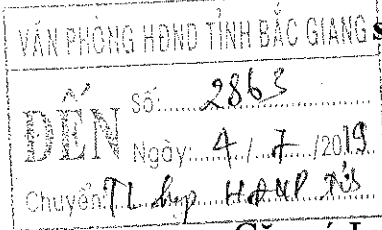 VĂN PHÒNG HĐND TỈNH BẮC GIANG
ĐẾN
Số: 2863
Ngày: 4 / 7 / 2019
Chuyển: TL họp HĐND